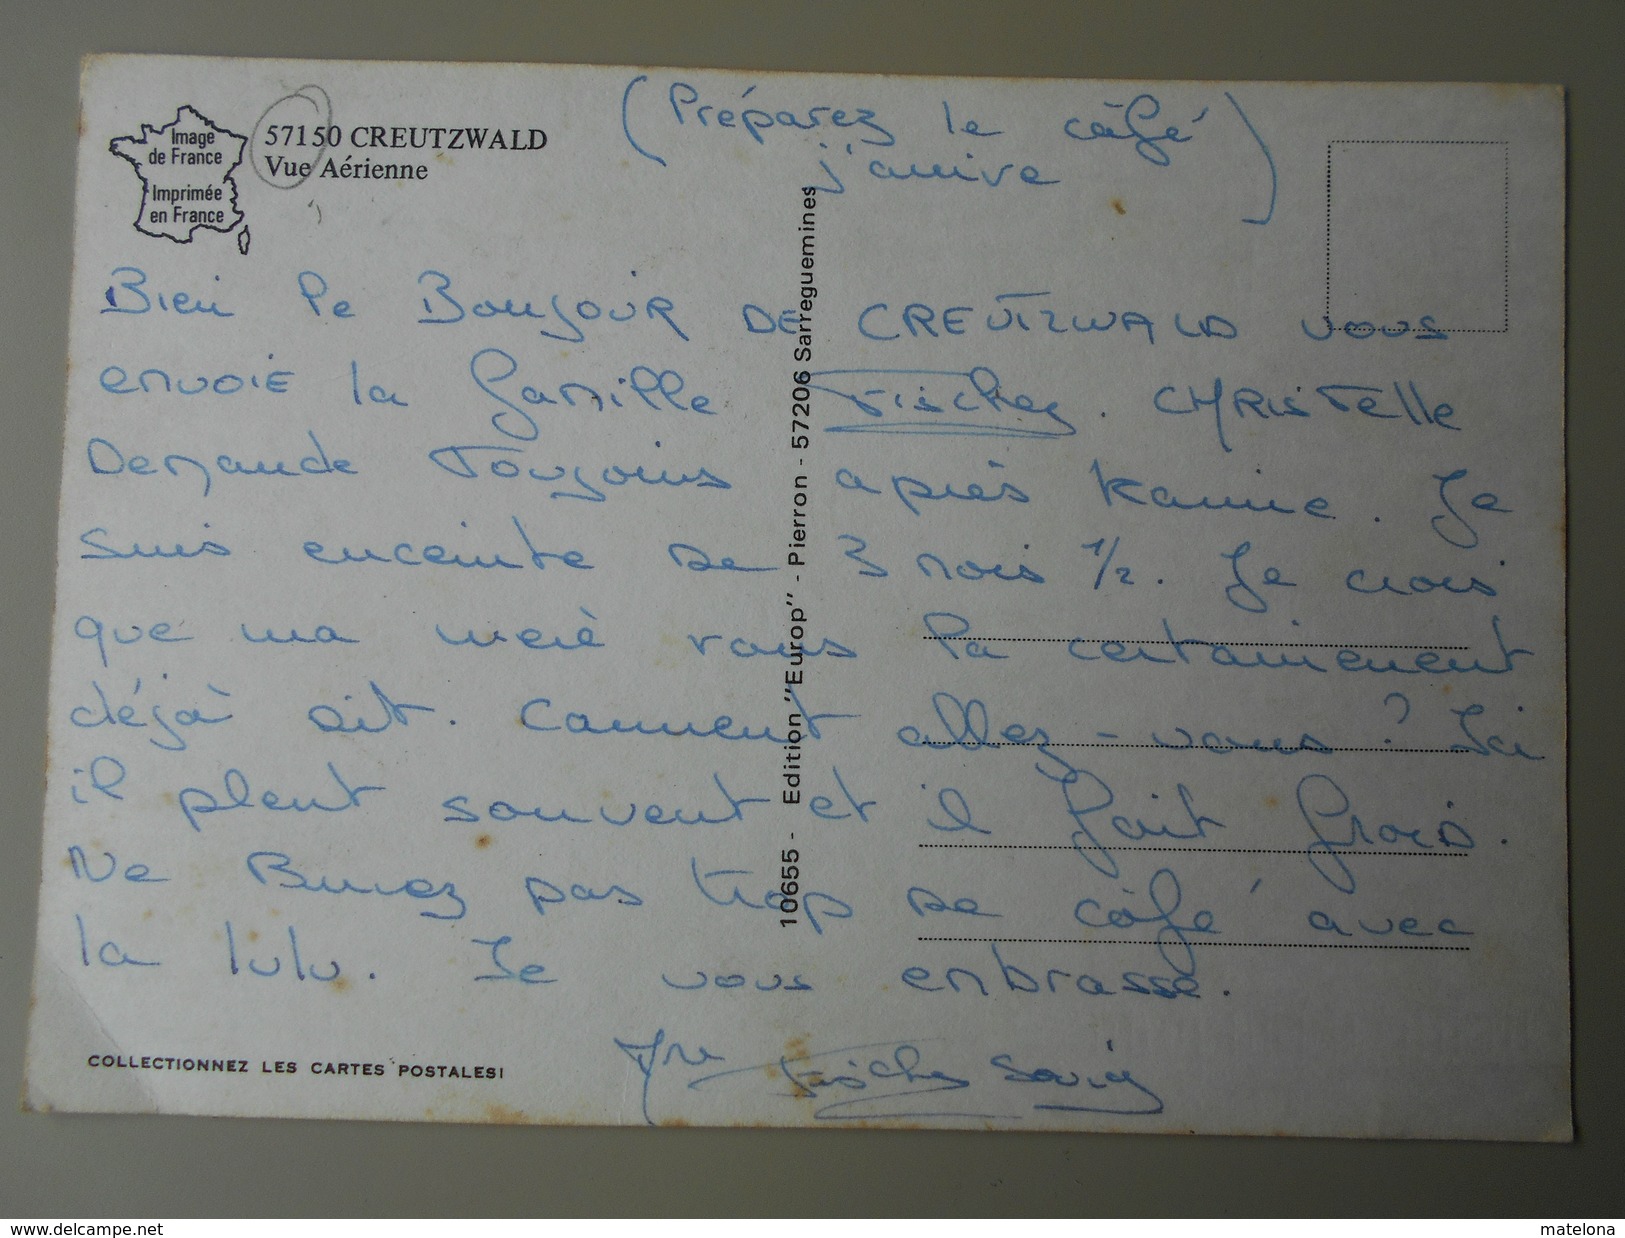 Image
de France
Imprimée
en France
57150 CREUTZWALD
Vue Aérienne
(Préparez le câfé
j'arrive)
Bien le Bonjour DE CREUTZWALD vous
envoie la famille Fischer. CHRISTelle
Demande Toujours après Karine. Je
suis enceinte de 3 mois 1/2. Je crois
que ma merè vous la certainement
déjà dit. Comment allez-vous? Ici
il pleut souvent et il fait froid.
Ne Buvez pas trop de câfé avec
la lulu. Je vous enbrasse.
Fischer
COLLECTIONNEZ LES CARTES POSTALES!
10655 - Edition "Europ" - Pierron - 57206 Sarreguemines
www.delcampe.net
matelona